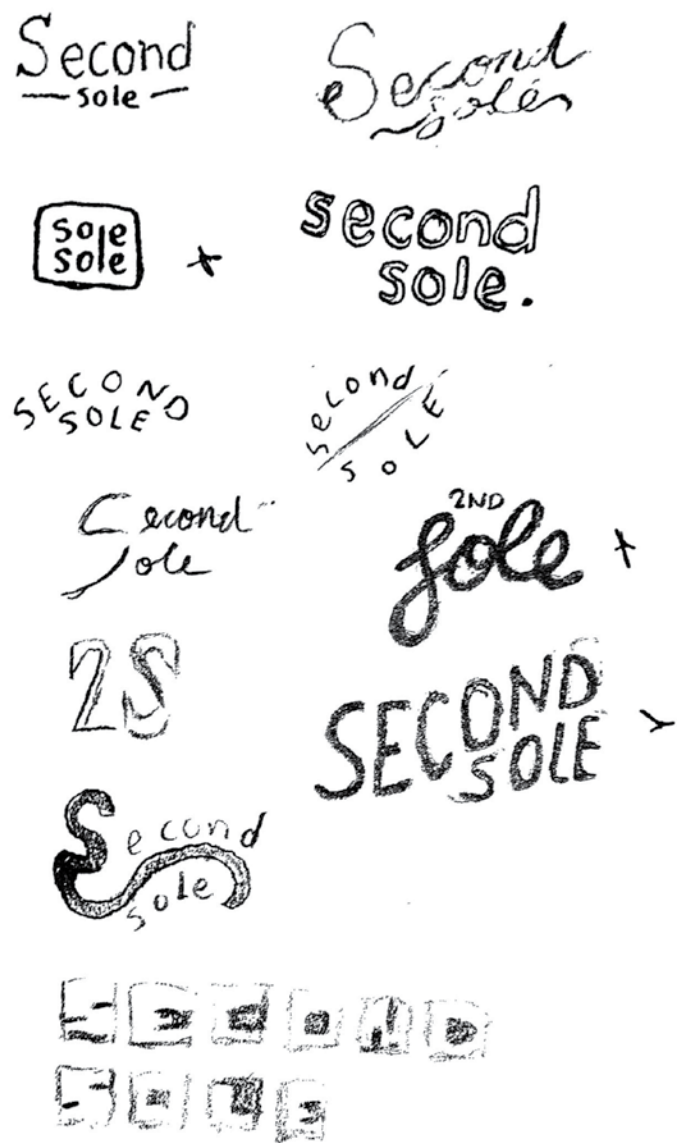 Second
sole
Second
sole
sole
sole
second
sole.
SECOND
SOLE
second
SOLE
Second
Sole
2ND
Sole
2S
SECOND
SOLE
Second
sole
SECOND
SOLE